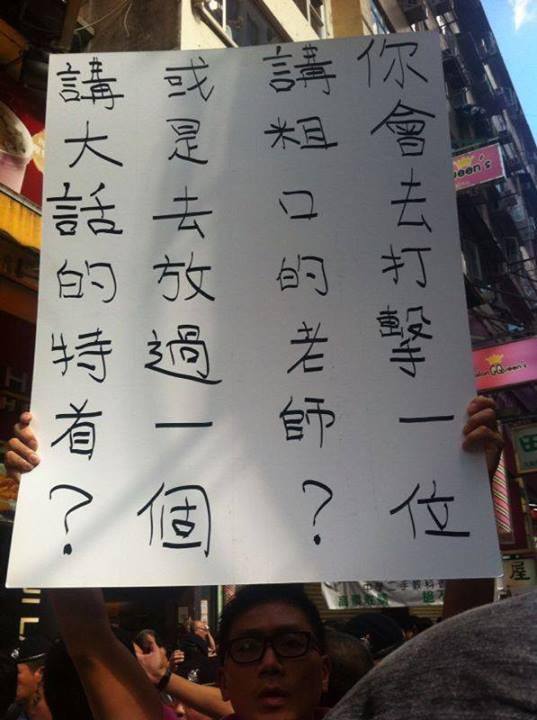 你會去打擊一位
講粗口的老師？
或是去放過一個
講大話的特首？
ueen's
QQueen's
二手教科
屋